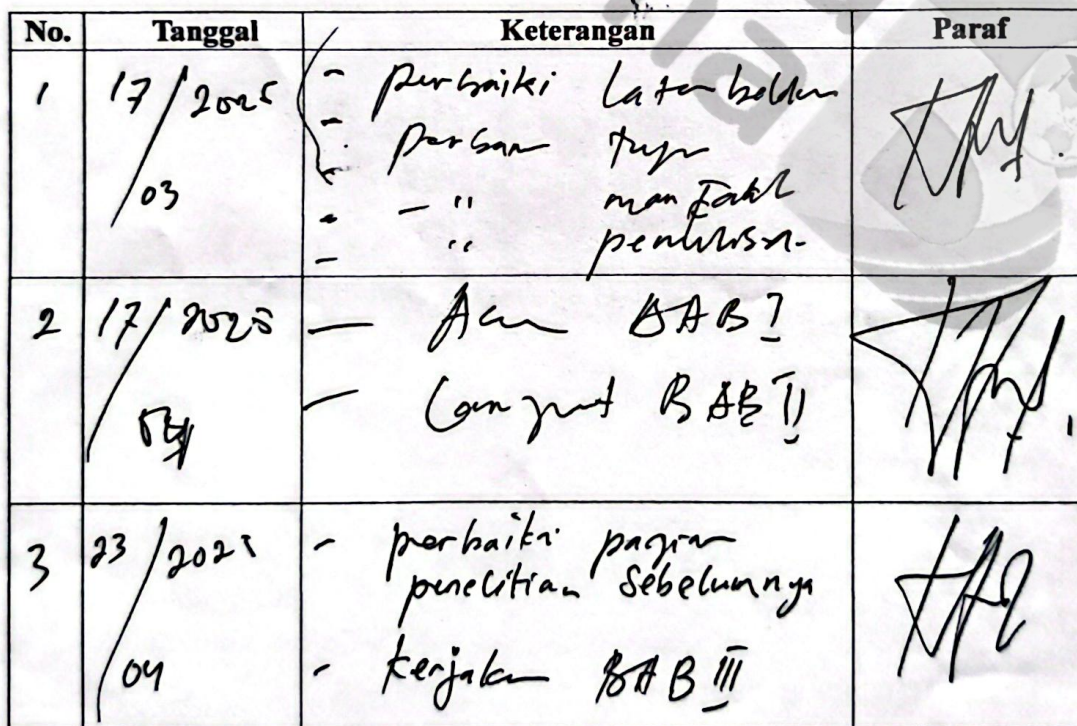 No. Tanggal Keterangan Paraf
1 17/2025 - perbaiki Latar belakan
03
- "
manfaat
- " penulisan
2 17/2025 - Acc BAB I
04 - Lanjut BAB II
3 23/2025 - perbaiki bagian
penelitian sebelumnya
04 - kerjakan BAB III